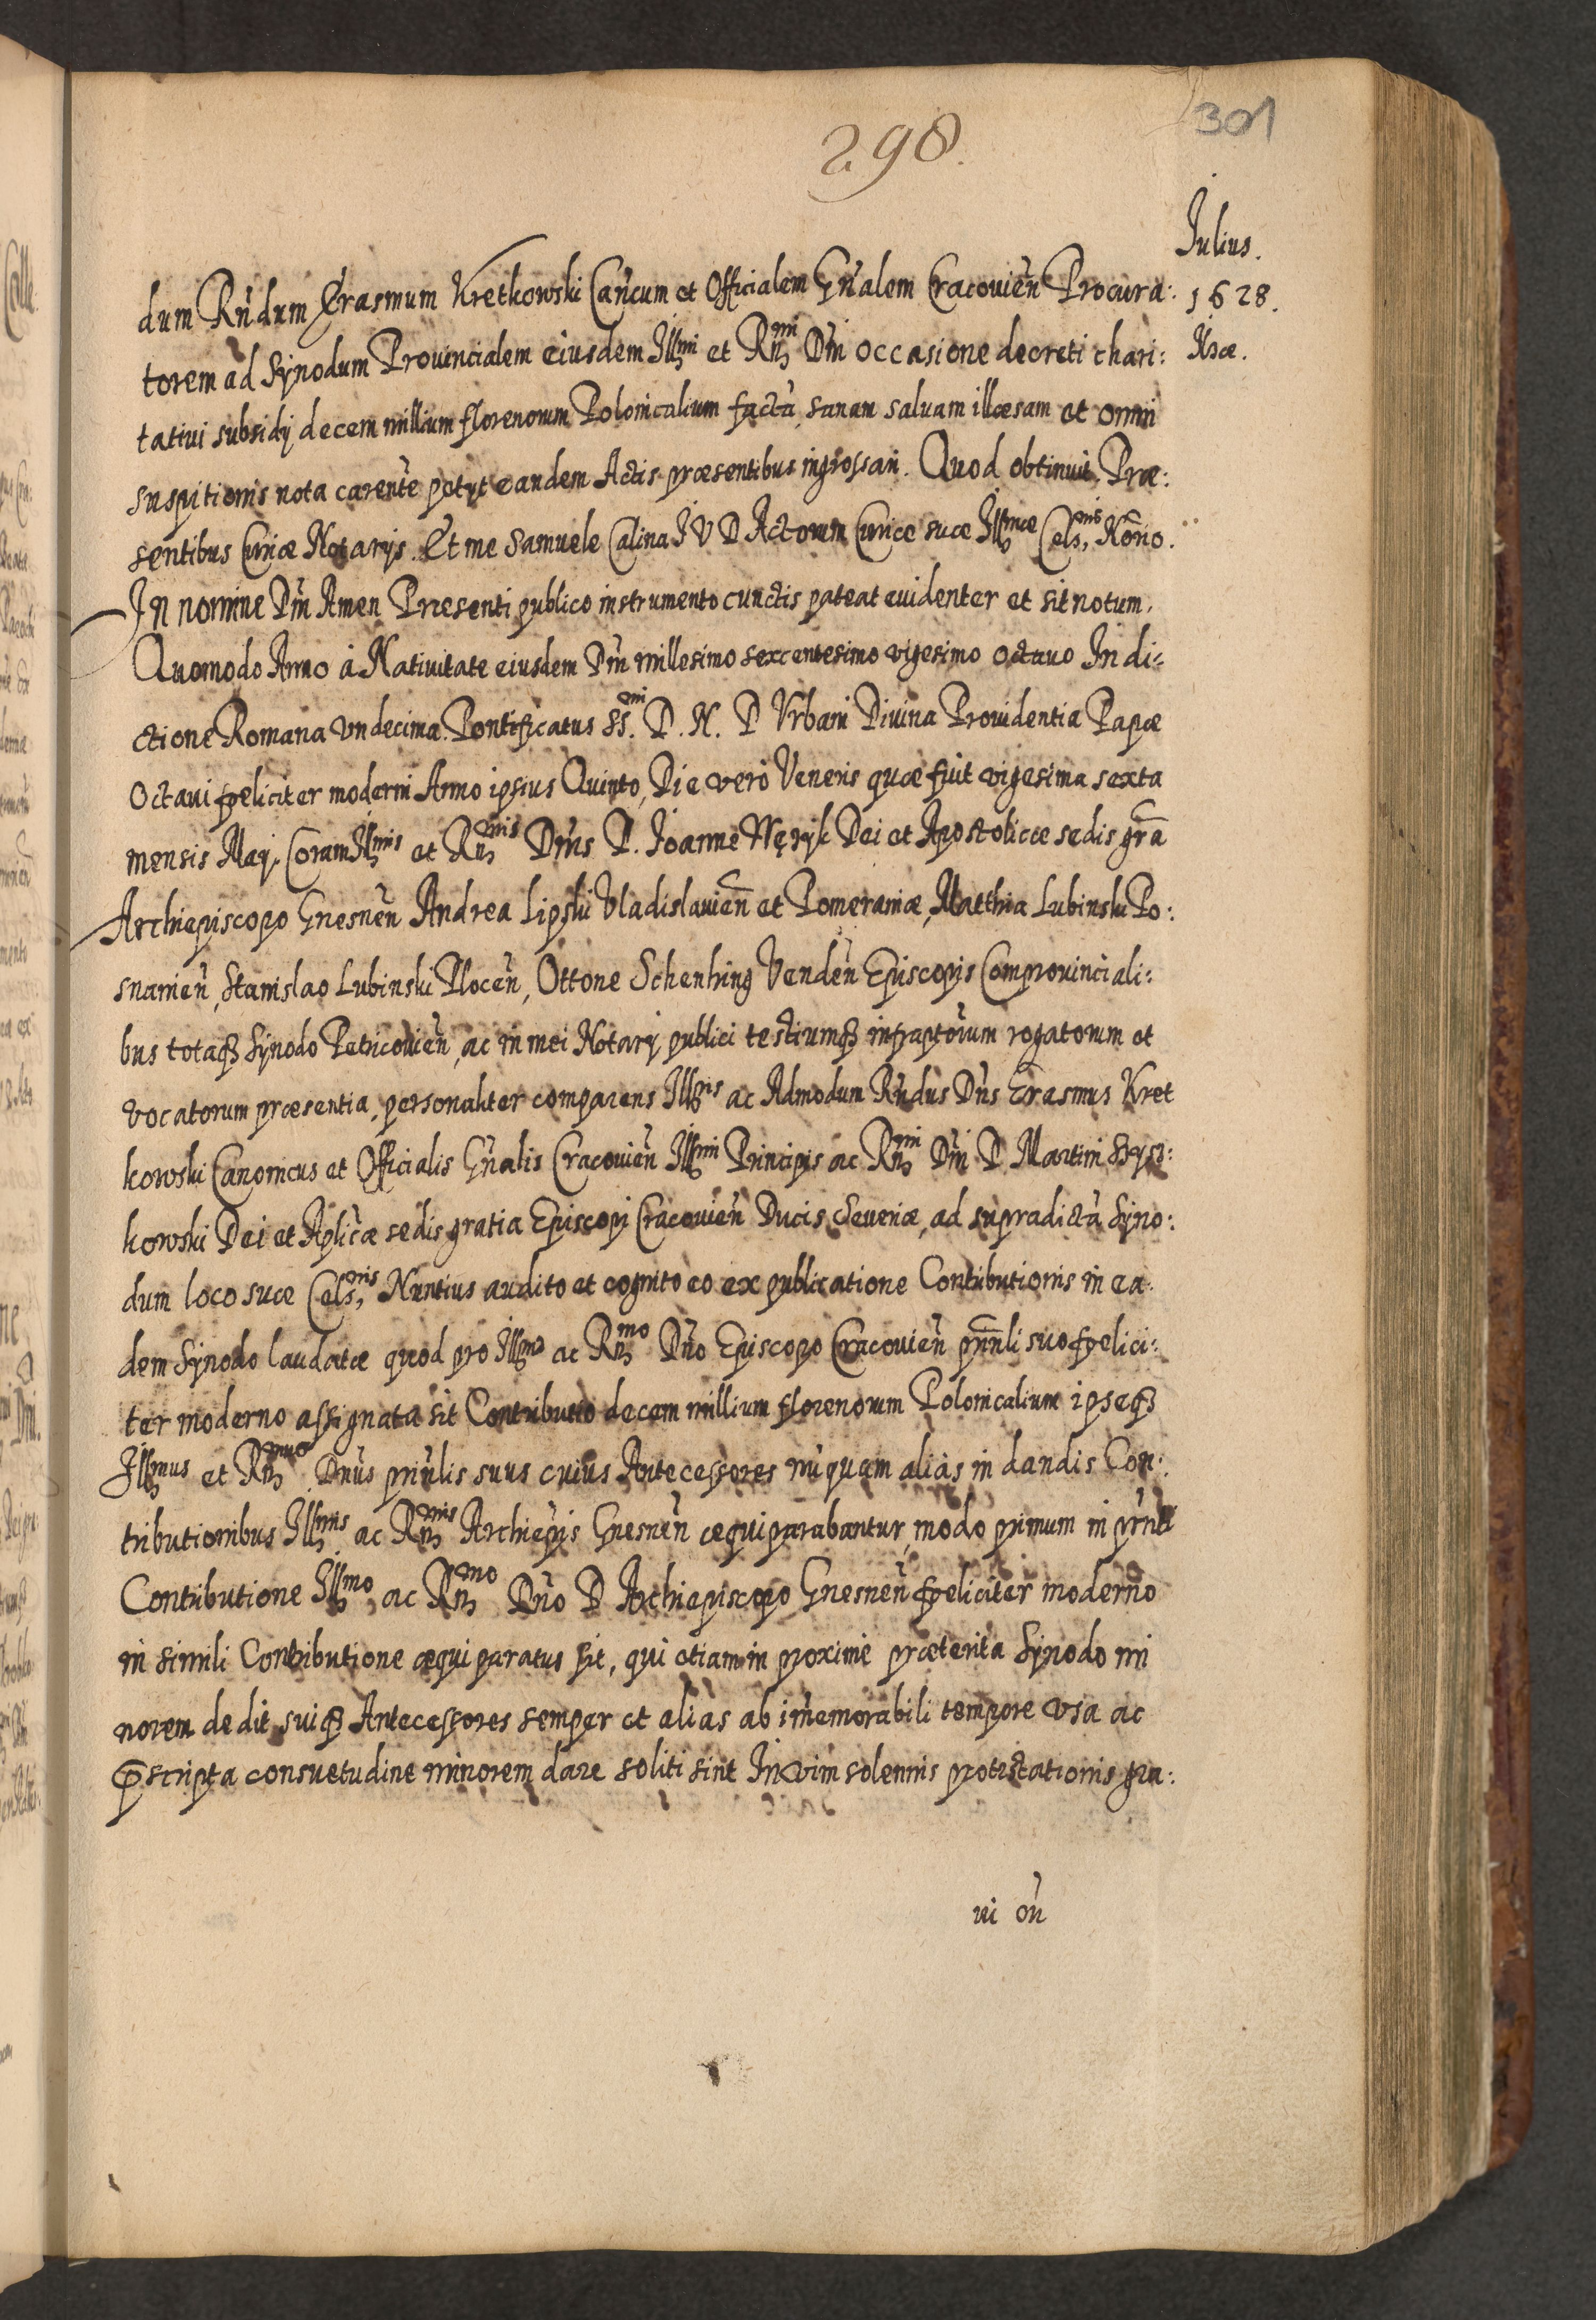 298.
301
Iulius.
1628.
Ilzæ.
dum Rńdum Erasmum Kretkowski Cańcum et Officialem Gńalem Cracouień Procura:
torem ad Synodum Prouincialem eiusdem Illmi et Rmi Dńi occasione decreti chari:
tatiui subsidij decem millium florenorum Polonicalium factà, sanam saluam illæsam et omni
suspitionis nota carentē petijt eandem Actis præsentibus ingrossari. Quod obtinuit. Præ:
sentibus Curiæ Notarijs. Et me Samuele Calina I V D Actorum Curiæ suæ Illmæ Celsnis Nōrio.
In nomine Dńi Amen Præsenti publico instrumento cunctis pateat euidenter et sit notum.
Quomodo Anno à Natiuitate eiusdem Dńi millesimo sexcentesimo vigesimo octauo Indi:
ctione Romana vndecima. Pontificatus SSmi. D. N. D Vrbani Diuina Prouidentia Papæ
Octaui feliciter moderni Anno ipsius Quinto, Die verò Veneris quæ fuit vigesima sexta
mensis Maij. Coram Illmis et Rmis Dńis D. Ioanne Wężyk Dei et Apostolicæ sedis grā
Archiepiscopo Gnesnēn Andrea Lipski Vladislauień et Pomeraniæ, Matthia Lubinski Po:
snanień, Stanislao Lubinski Plocēn, Ottone Schenhing Vendēn Episcopis Comprouinciali:
bus totaqȝ Synodo Petricouień, ac in mei Notarij publici testiumqȝ infrāptorum rogatorum et
vocatorum præsentia, personaliter comparens Illris ac Admodum Rńdus Dńs Erasmus Kret
kowski Canonicus et Officialis Gńalis Cracouień Illmi Principis ac Rmi Dńi D Martini Szysz:
kowski Dei et Aplicæ sedis gratia Episcopi Cracouień Ducis Seueriæ, ad supradictā Syno:
dum loco suæ Celsnis Nuntius audito et cognito eo ex publicatione Contributionis in ea:
dem Synodo laudatæ quod pro Illmo ac Rmo Dńo Episcopo Cracouień prīnli suo felici:
ter moderno assignata sit Contributio decem millium florenorum Polonicalium ipseqȝ
Illmus et Rmus Dńus priń̄lis suus cuius Antecessores nūquam aliàs in dandis Con:
tributionibus Illmis ac Rmis Archiepīs Gnesnēn æquiparabantur, modo primum in prńti
Contributione Illmo ac Rmo Dńo D Archiepiscopo Gnesnēn feliciter moderno
in simili Contributione æquiparatus sit, qui etiam in proximè præterita Synodo mi
norem dedit suiqȝ Antecessores semper et alias ab imēmorabili tempore vsa ac
p̄scripta consuetudine minorem dare soliti sint In vim solennis protestationis gra:
ui oń